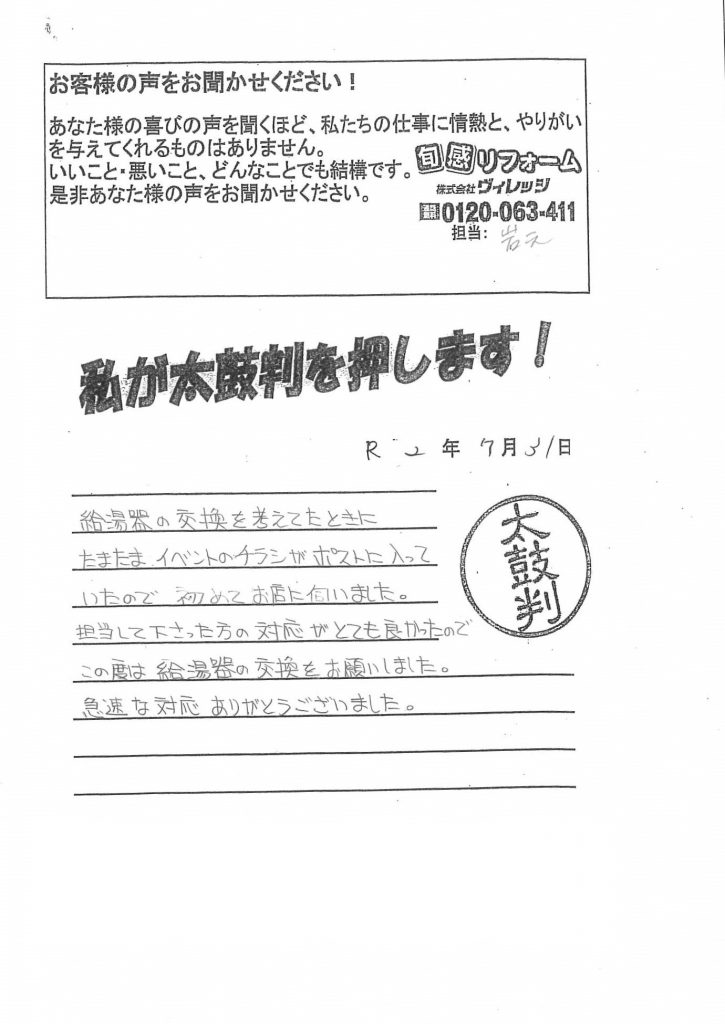 お客様の声をお聞かせください！
あなた様の喜びの声を聞くほど、私たちの仕事に情熱と、やりがい
を与えてくれるものはありません。
いいこと・悪いこと、どんなことでも結構です。
是非あなた様の声をお聞かせください。
旬感リフォーム
株式会社ヴィレッジ
0120-063-411
担当: 岩元
私が太鼓判を押します！
R 2 年 7月31日
給湯器の交換を考えてたときに
たまたま イベントのチラシが ポストに入って
いたので 初めて お店に伺いました。
担当して下さった方の 対応がとても良かったので
この度は 給湯器の交換をお願いしました。
急速な対応 ありがとうございました。
太鼓判